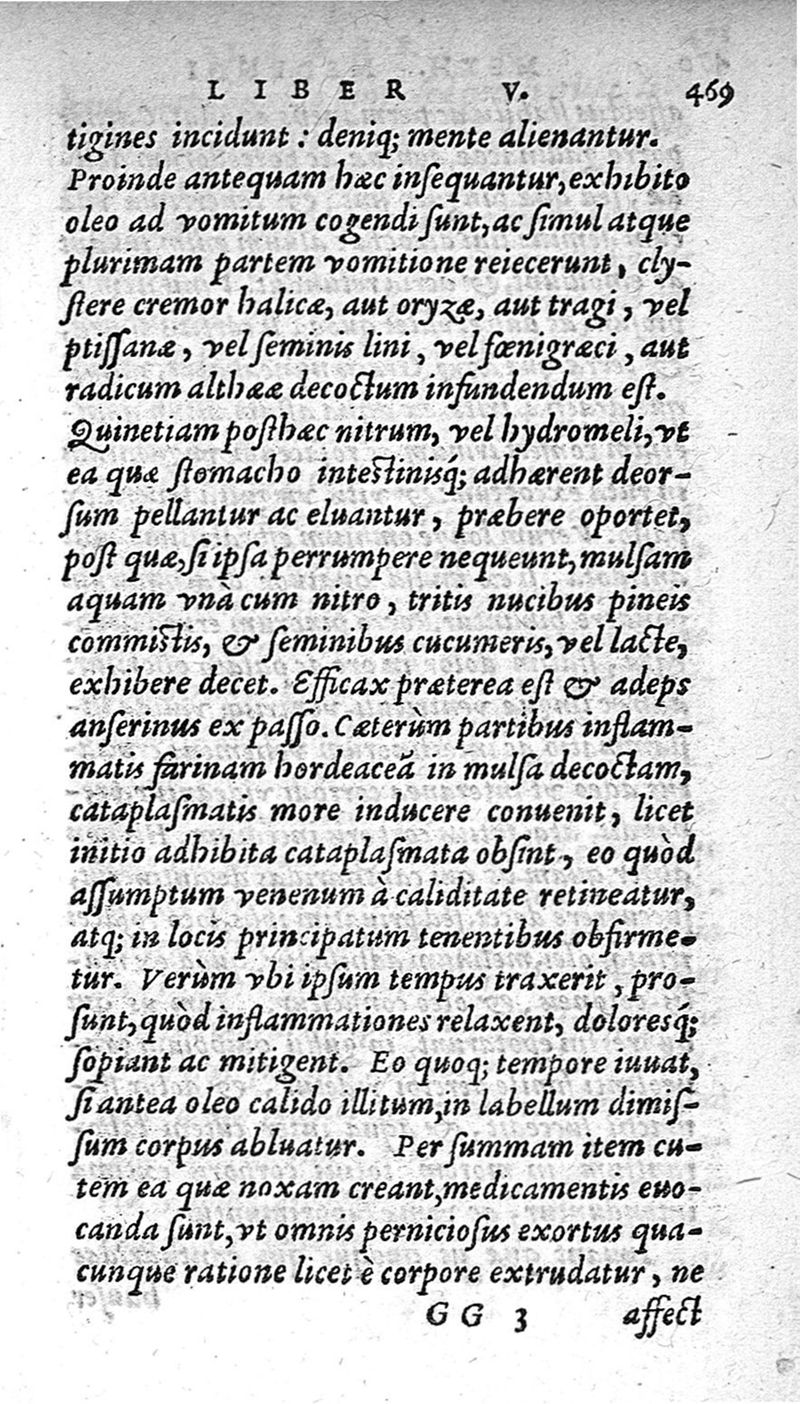 LIBER V. 469
tigines incidunt: deniq; mente alienantur.
Proinde antequam hæc inſequantur, exhibito
oleo ad vomitum cogendi ſunt, ac ſimul atque
plurimam partem vomitione reiecerunt, cly-
ſtere cremor halicæ, aut oryzæ, aut tragi, vel
ptiſſanæ, vel ſeminis lini, vel fœnigræci, aut
radicum althææ decoctum infundendum eſt.
Quinetiam poſthæc nitrum, vel hydromeli, vt
ea quæ ſtomacho inteſtinisq́; adhærent deor-
ſum pellantur ac eluantur, præbere oportet,
poſt quæ, ſi ipſa perrumpere nequeunt, mulſam
aquam vnà cum nitro, tritis nucibus pineis
commiſtis, & ſeminibus cucumeris, vel lacte,
exhibere decet. Efficax præterea eſt & adeps
anſerinus ex paſſo. Cæterùm partibus inflam-
matis farinam hordeaceã in mulſa decoctam,
cataplaſmatis more inducere conuenit, licet
initio adhibita cataplaſmata obſint, eo quòd
aſſumptum venenum à caliditate retineatur,
atq; in locis principatum tenentibus obfirme-
tur. Verùm vbi ipſum tempus traxerit, pro-
ſunt, quòd inflammationes relaxent, doloresq́;
ſopiant ac mitigent. Eo quoq; tempore iuuat,
ſi antea oleo calido illitum, in labellum dimiſ-
ſum corpus abluatur. Per ſummam item cu-
tem ea quæ noxam creant, medicamentis euo-
canda ſunt, vt omnis pernicioſus exortus qua-
cunque ratione licet è corpore extrudatur, ne
GG 3 affect